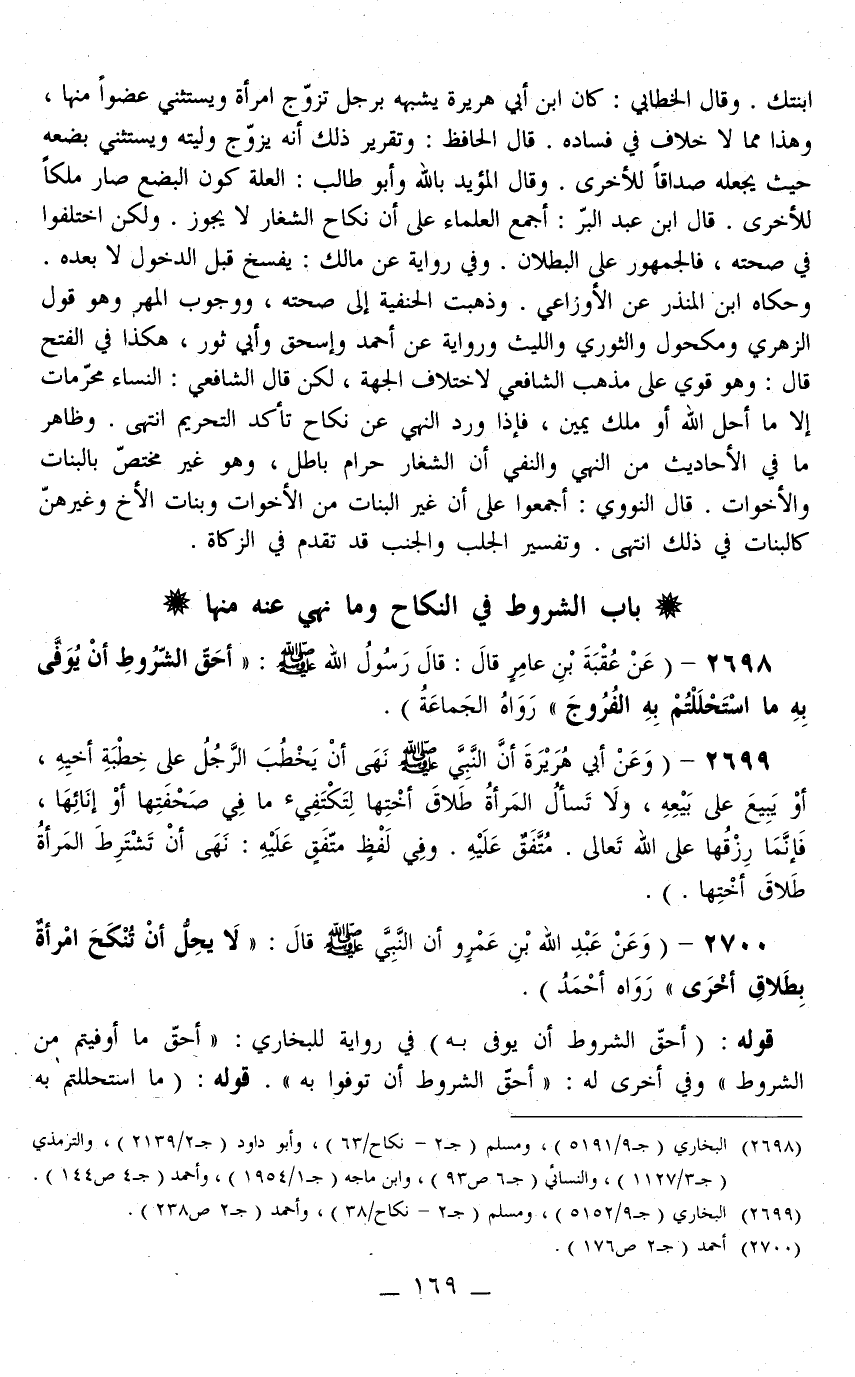 ابنتك . وقال الخطابي : كان ابن أبي هريرة يشبهه برجل تزوّج امرأة ويستثني عضواً منها ،
وهذا مما لا خلاف في فساده . قال الحافظ : وتقرير ذلك أنه يزوّج وليته ويستثني بضعه
حيث يجعله صداقاً للأخرى . وقال المؤيد بالله وأبو طالب : العلة كون البضع صار ملكاً
للأخرى . قال ابن عبد البرّ : أجمع العلماء على أن نكاح الشغار لا يجوز . ولكن اختلفوا
في صحته ، فالجمهور على البطلان . وفي رواية عن مالك : يفسخ قبل الدخول لا بعده .
وحكاه ابن المنذر عن الأوزاعي . وذهبت الحنفية إلى صحته ، ووجوب المهر وهو قول
الزهري ومكحول والثوري والليث ورواية عن أحمد وإسحق وأبي ثور ، هكذا في الفتح
قال : وهو قوي على مذهب الشافعي لاختلاف الجهة ، لكن قال الشافعي : النساء محرّمات
إلا ما أحل الله أو ملك يمين ، فإذا ورد النهي عن نكاح تأكد التحريم انتهى . وظاهر
ما في الأحاديث من النهي والنفي أن الشغار حرام باطل ، وهو غير مختصّ بالبنات
والأخوات . قال النووي : أجمعوا على أن غير البنات من الأخوات وبنات الأخ وغيرهنّ
كالبنات في ذلك انتهى . وتفسير الجلب والجنب قد تقدم في الزكاة .
❋ باب الشروط في النكاح وما نهي عنه منها ❋
٢٦٩٨ – ( عَنْ عُقْبَةَ بْنِ عامِرٍ قالَ : قالَ رَسُولُ الله ﷺ : « أحَقّ الشّرُوطِ أنْ يُوَفَّى
بِهِ ما اسْتَحْلَلْتُمْ بِهِ الفُرُوجَ » رَوَاهُ الجَماعَةُ ) .
٢٦٩٩ – ( وَعَنْ أبي هُرَيْرَةَ أنَّ النَّبِيَّ ﷺ نَهَى أنْ يَخْطُبَ الرَّجُلُ على خِطْبَةِ أخيِهِ ،
أوْ يَبِيعَ على بَيْعِهِ ، ولَا تَسألُ المَرأةُ طَلاقَ أخْتِها لِتَكْتَفِيء ما فِي صَحْفَتِها أوْ إنَائِهَا ،
فَإنَّمَا رِزْقُها على الله تَعالى . مُتَّفَقٌ عَلَيْهِ . وفِي لَفْظٍ متّفَقٍ عَلَيْهِ : نَهَى أنْ تَشْتَرِطَ المَرأةُ
طَلاقَ أخْتِها . ) .
٢٧٠٠ – ( وَعَنْ عَبْدِ الله بْنِ عَمْرٍو أن النَّبِيَّ ﷺ قالَ : « لَا يحِلُّ أنْ تُنْكَحَ امْرأةٌ
بِطَلاقِ أخْرَى » رَوَاه أحْمَدُ ) .
قوله : ( أحقّ الشروط أن يوفى بـه ) في رواية للبخاري : « أحقّ ما أوفيتم من
الشروط » وفي أخرى له : « أحقّ الشروط أن توفوا به » . قوله : ( ما استحللتم به
(٢٦٩٨) البخاري ( جـ٥١٩١/٩ ) ، ومسلم ( جـ٢ – نكاح/٦٣ ) ، وأبو داود ( جـ٢١٣٩/٢ ) ، والترمذي
( جـ١١٢٧/٣ ) ، والنسائي ( جـ٦ ص٩٣ ) ، وابن ماجه ( جـ١٩٥٤/١ ) ، وأحمد ( جـ٤ ص١٤٤ ) .
(٢٦٩٩) البخاري ( جـ٥١٥٢/٩ ) ، ومسلم ( جـ٢ – نكاح/٣٨ ) ، وأحمد ( جـ٢ ص٢٣٨ ) .
(٢٧٠٠) أحمد ( جـ٢ ص١٧٦ ) .
– ١٦٩ –